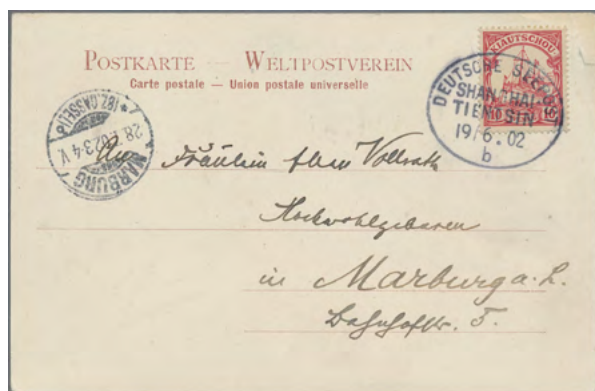 POSTKARTE — WELTPOSTVEREIN
Carte postale — Union postale universelle
KIAUTSCHOU
DEUTSCHE
SHANGHAI
TIENTSIN
19/6.02
b
MARBURG
An Fräulein Ellen Vollrath
Hochwohlgeboren
in Marburg a. L.
Bahnhofstr. 5.